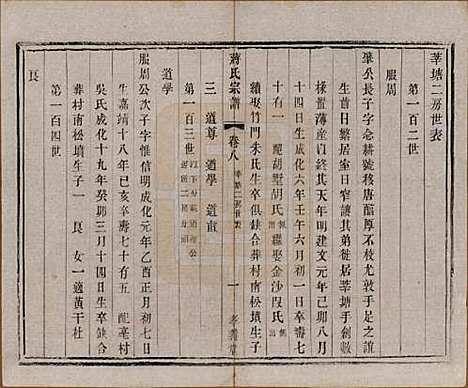 莘塘二房世表
第一百二世
服周
公長子字念耕 厚不枝尤
生 日繁居室日窄 其弟徙居莘塘手創數
椽置薄産以終其天年明建文元年己卯八月
十四日生成化六年壬午六月初一日卒壽七
十有一 配胡墅胡氏 繼娶金沙段氏
續娶竹門朱氏生卒俱缺合葬村南松墳生子
蔣氏宗譜 卷八 莘塘二房世表 一
三 道尊 道學 道直
第一百三世
道學
服周公次子字惟信明成化元年乙酉正月初七日
生嘉靖十八年 壽七十有五 配亳村
吳氏成化十九年癸卯三月十四日生卒缺合
葬村南松墳生子一 良 女一適黃干社
第一百四世
良